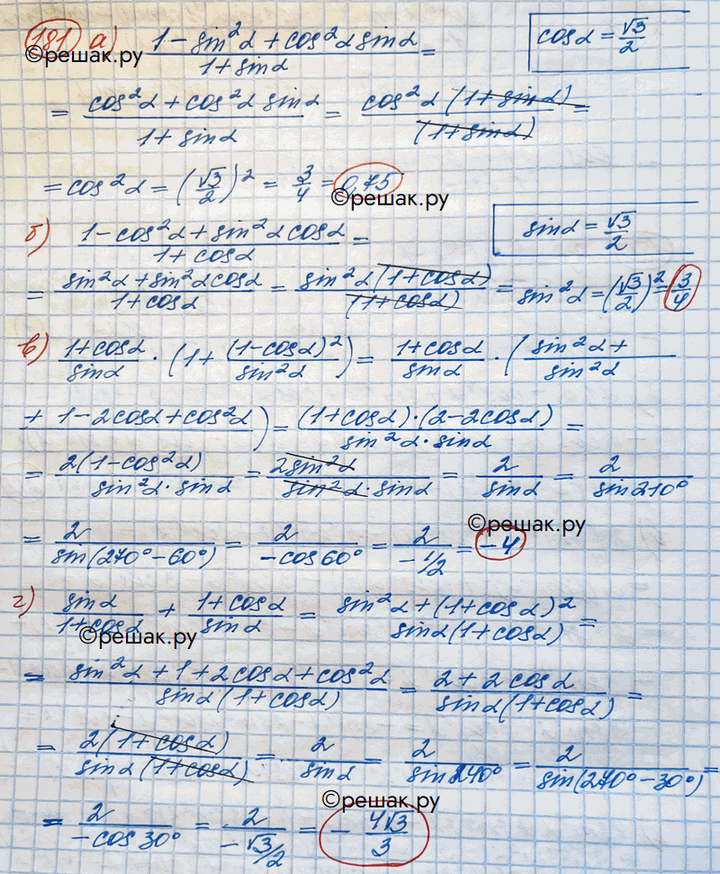 181 а) (1 - sin²α + cos²α sinα)/(1 + sinα) =
cosα = √3/2
©решак.ру
= (cos²α + cos²α sinα)/(1 + sinα) = (cos²α (1 + sinα))/((1 + sinα)) =
= cos²α = (√3/2)² = 3/4 = 0,75
©решак.ру
б) (1 - cos²α + sin²α cosα)/(1 + cosα) =
sinα = √3/2
= (sin²α + sin²α cosα)/(1 + cosα) = (sin²α (1 + cosα))/((1 + cosα)) = sin²α = (√3/2)² = 3/4
в) (1 + cosα)/sinα · (1 + (1 - cosα)²/sin²α) = (1 + cosα)/sinα · (sin²α +/sin²α
+ 1 - 2cosα + cosα²α) = ((1 + cosα) · (2 - 2cosα))/(sin²α · sinα) =
= 2(1 - cos²α)/(sin²α · sinα) = 2sin²α/(sin²α · sinα) = 2/sinα = 2/sin210°
©решак.ру
= 2/sin(270° - 60°) = 2/-cos60° = 2/-1/2 = -4
г) sinα/(1 + cosα) + (1 + cosα)/sinα = (sin²α + (1 + cosα)²)/(sinα(1 + cosα)) =
©решак.ру
= (sin²α + 1 + 2cosα + cos²α)/(sinα(1 + cosα)) = (2 + 2cosα)/(sinα(1 + cosα)) =
= 2(1 + cosα)/(sinα(1 + cosα)) = 2/sinα = 2/sin240° = 2/sin(270° - 30°) =
©решак.ру
= 2/-cos30° = 2/-√3/2 = - 4√3/3